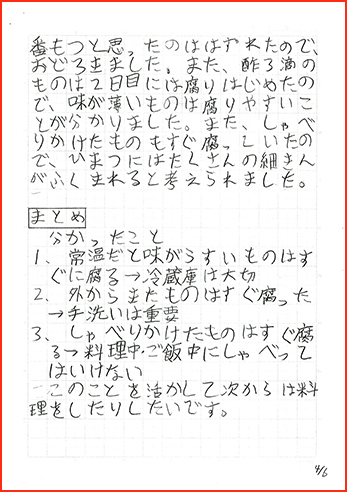 番もつと思ったのははずれたので、
おどろきました。また、酢3滴の
ものは2日目には腐りはじめたの
で、味が薄いものは腐りやすいこ
とが分かりました。また、しゃべ
りかけたものもすぐ腐っていたの
で、ひまつにはたくさんの細きん
がふくまれると考えられました。
まとめ
分かったこと
1、常温だと味がうすいものはす
ぐに腐る→冷蔵庫は大切
2、外からきたものはすぐ腐った
→手洗いは重要
3、しゃべりかけたものはすぐ腐
る→料理中・ご飯中にしゃべって
はいけない
このことを活かして次からは料
理をしたりしたいです。
4/6